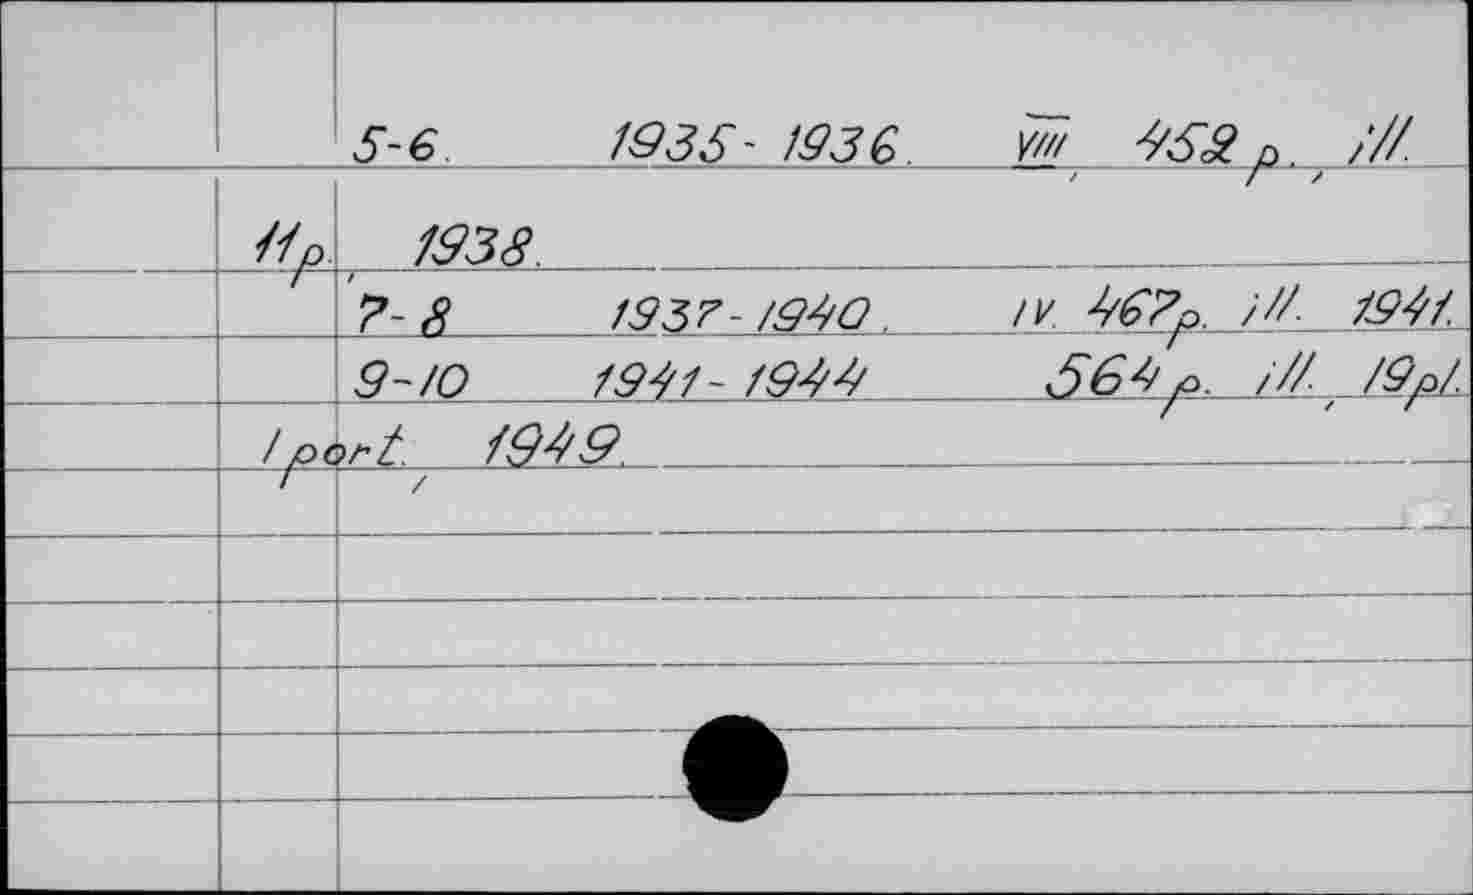 5-6. 1935-1936. VIII, 452 p., ill.
11p., 1938.
7-8 1937-1940. IV. 467p. ill. 1941.
9-10 1941-1944 564 p. ill., 19pl.
1 port., 1949.